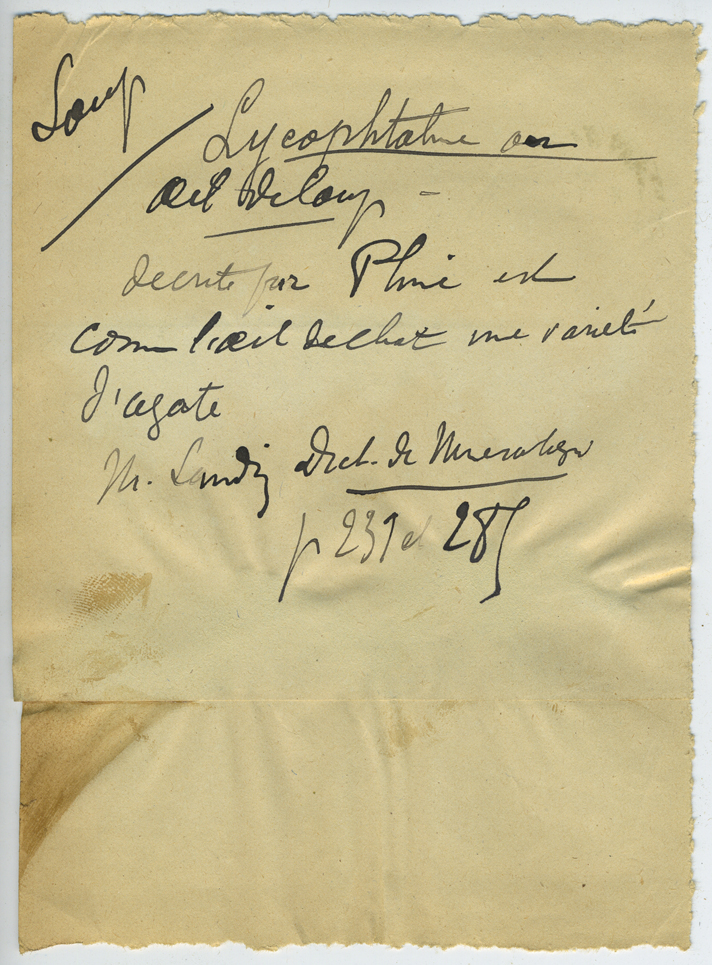 Loup
Lycophtalme ou
œil de loup -
decrite par Pline est
comme l'œil de chat une varieté
d'agate
M. Landrin Dict. de Mineralogie
p 231 et 285